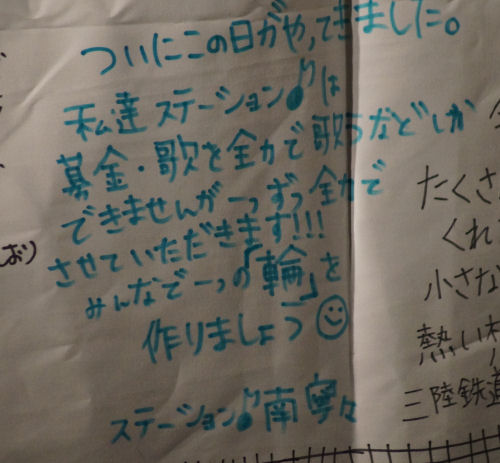 ついにこの日がやってきました。
私達ステーション♪は
募金・歌を全力で歌うなどしか
できませんが一つずつ全力で
させていただきます!!!
みんなで一つの「輪」を
作りましょう☺
ステーション♪南寧々
たくさ
くれ
小さな
熱い
三陸鉄道